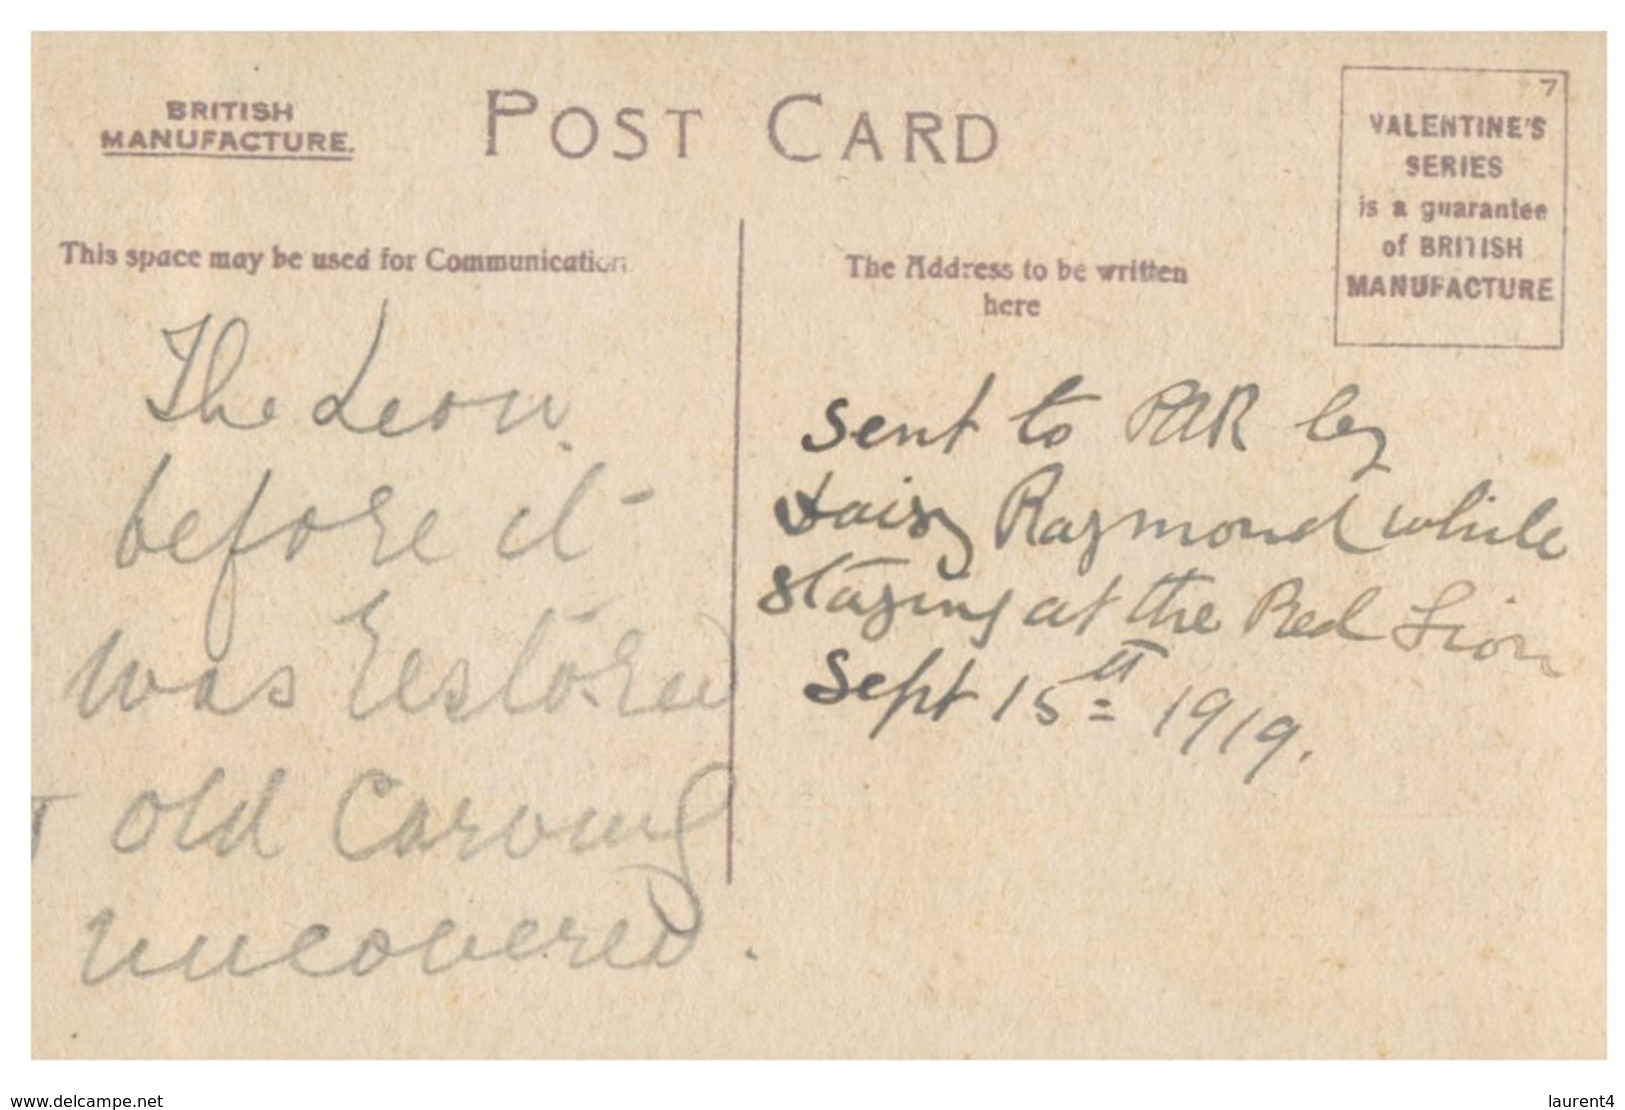 BRITISH
MANUFACTURE.
POST CARD
7
VALENTINE'S
SERIES
is a guarantee
of BRITISH
MANUFACTURE
This space may be used for Communication.
The Address to be written
here
The
before it
was restored
old Carving
uncovered.
Sent to by
Daisy Raymond while
staying at the Red Lion
Sept 15th 1919.
www.delcampe.net
laurent4